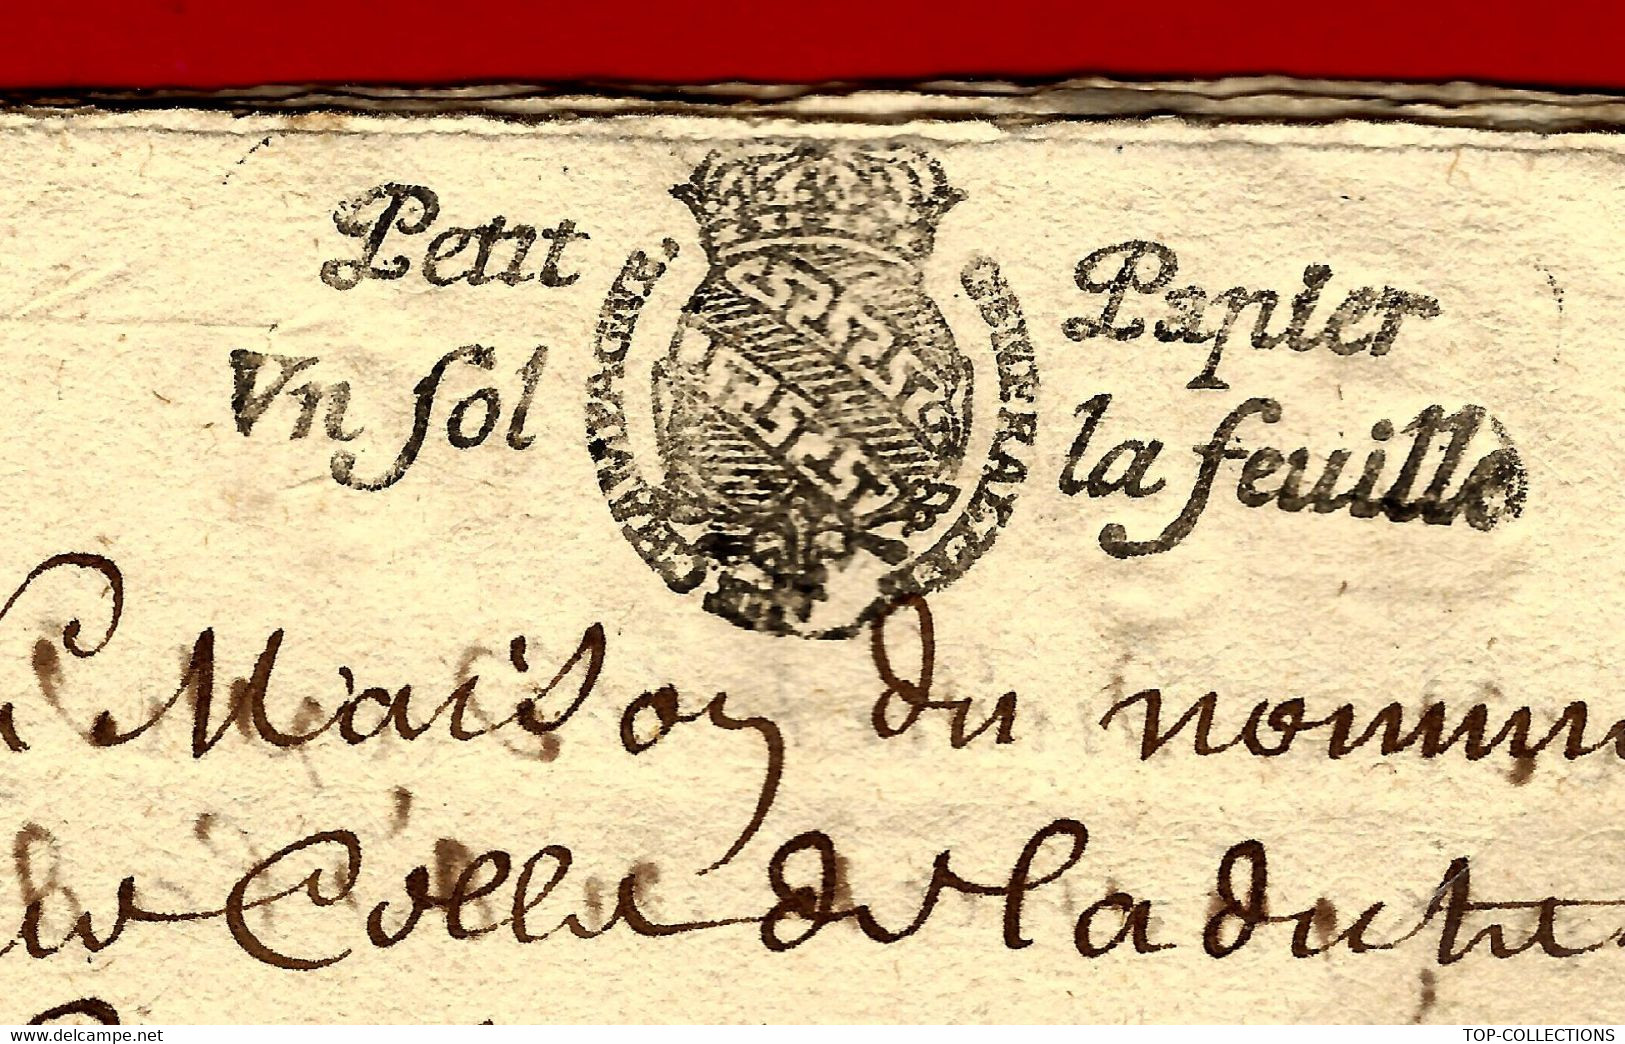 Petit Papier
Vn sol la feuille
GENERALITE DE CHAMPAGNE
Maison du nomm
Celle de la dite
www.delcampe.net your name
TOP-COLLECTIONS